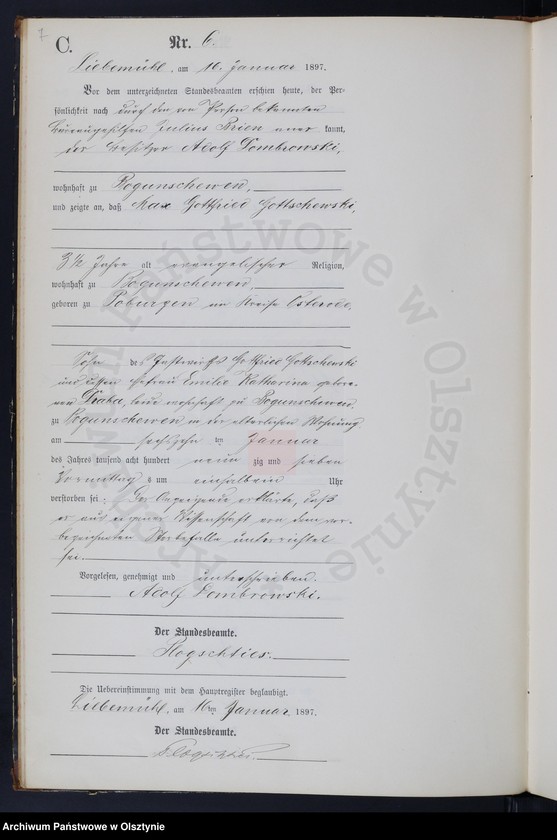 7
C.
Nr. 6.
Liebemühl, am 16. Januar 1897.
Vor dem unterzeichneten Standesbeamten erschien heute, der Per-
sönlichkeit nach durch den von Person bekannten
Büreaugehilfen Julius Brien aner kannt,
der Besitzer Adolf Dombrowski,
wohnhaft zu Bogunschewen,
und zeigte an, daß Max Gottfried Gottschewski,
3½ Jahre alt evangelischer Religion,
wohnhaft zu Bogunschewen,
geboren zu Poburzen im Kreise Osterode,
Sohn des Gastwirths Gottfried Gottschewski
und dessen Ehefrau Emilie Katharina gebore-
nen Traba, beide wohnhaft zu Bogunschewen,
zu Bogunschewen in der elterlichen Wohnung
am sechszehnten Januar
des Jahres tausend acht hundert neun zig und sieben
Vormittag s um einhalbein Uhr
verstorben sei; Der Anzeigende erklärte, daß
er aus eigener Wissenschaft von dem vor-
bezeichneten Sterbefalle unterrichtet
sei.
Vorgelesen, genehmigt und unterschrieben.
Adolf Dombrowski.
Der Standesbeamte.
Rogschties.
Die Uebereinstimmung mit dem Hauptregister beglaubigt.
Liebemühl, am 16ten Januar 1897.
Der Standesbeamte.
Rogschties.
Archiwum Państwowe w Olsztynie
Archiwum Państwowe w Olsztynie